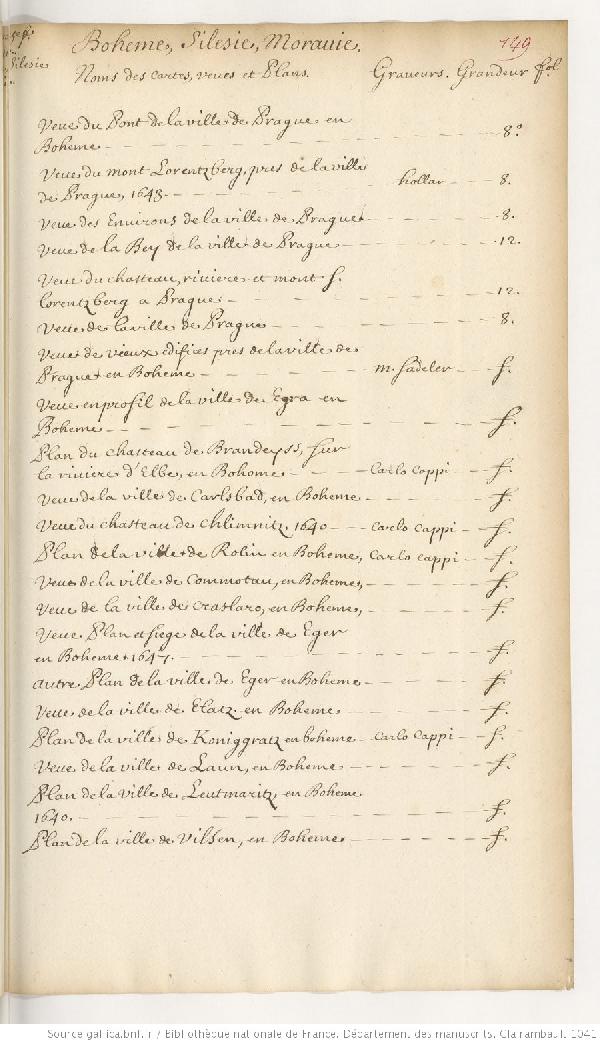 Boheme, Silesie, Morauie.
149
Silesie
Noms des cartes, veues et Plans. Graveurs. Grandeur fol.
Veue du Pont de la ville de Prague en
Boheme 8.º
Veue du mont Lorentzberg, pres de la ville
de Prague, 1648. hollar 8.
Veue des Environs de la ville de Prague 8.
Veue de la Bey de la ville de Prague 12.
Veue du chasteau, riviere et mont S.
Lorentzberg a Prague 12.
Veue de la ville de Prague 8.
Veue de vieux edifices pres de la ville de
Prague en Boheme m. sadeler f.
Veue en profil de la ville de Egra en
Boheme f.
Plan du chasteau de Brandeyss, sur
la riviere d'Elbe, en Boheme Carlo Cappi f.
Veue de la ville de Carlsbad, en Boheme f.
Veue du chasteau de Chlimnitz, 1640 Carlo Cappi f.
Plan de la ville de Kolin en Boheme, Carlo Cappi f.
Veue de la ville de Commotau, en Boheme, f.
Veue de la ville de Craslaro, en Boheme, f.
Veue Plan et siege de la ville de Eger
en Boheme 1647. f.
autre Plan de la ville de Eger en Boheme f.
Veue de la ville de Elatz en Boheme f.
Plan de la ville de Koniggratz en boheme Carlo Cappi f.
Veue de la ville de Laun, en Boheme f.
Plan de la ville de Leutmaritz, en Boheme
1640. f.
Plan de la ville de Vilsen, en Boheme f.
Source gallica.bnf.fr / Bibliothèque nationale de France. Département des manuscrits. Clairambault 1041